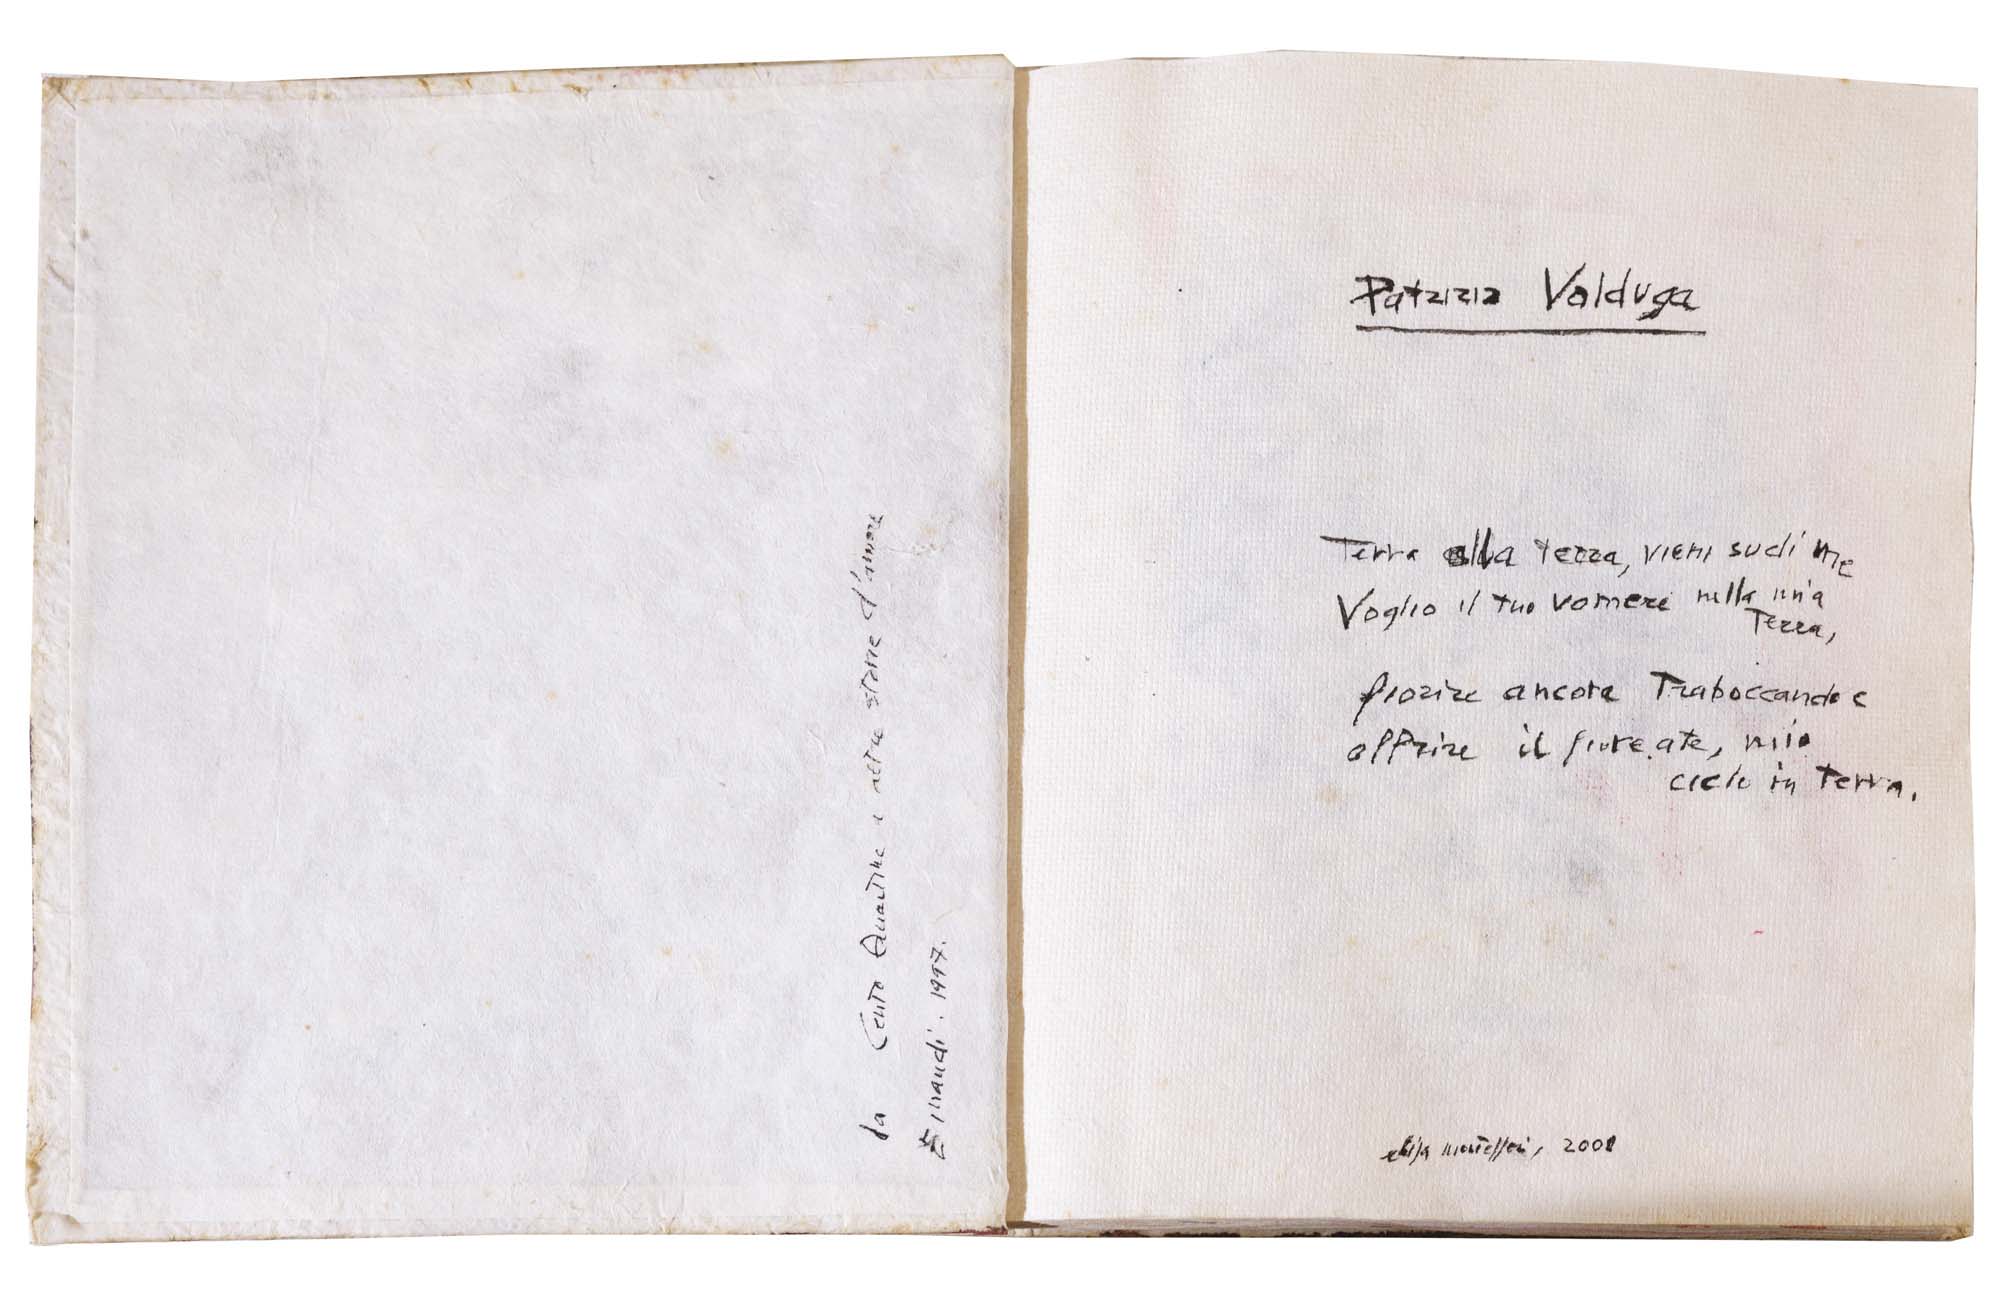 da Cento Quartine e altre storie d'amore
Einaudi. 1997.
Patrizia Valduga
Terra alla terra, vieni su di me
Voglio il tuo vomere nella mia
Terra,
fiorire ancora Traboccando e
offrire il fiore a te, mio
cielo in terra.
elisa montessori, 2001